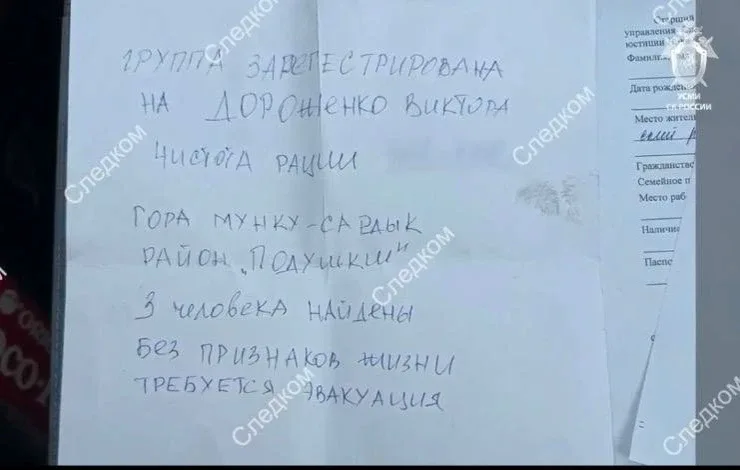 ГРУППА ЗАРЕГЕСТРИРОВАНА
НА ДОРОЖЕНКО ВИКТОРА
ЧИСТОТА РАЦИИ
ГОРА МУНКУ-САРДЫК
РАЙОН „ПОДУШКИ"
3 ЧЕЛОВЕКА НАЙДЕНЫ
БЕЗ ПРИЗНАКОВ ЖИЗНИ
ТРЕБУЕТСЯ ЭВАКУАЦИЯ
Старший
управления
юстиции
Дата рожден
Место жител
Гражданство
Семейное п
Место раб
Наличи
Паспо
УСМИ
СК РОССИИ
Следком
Следком
Следком
Следком
Следком
Следком
Следком